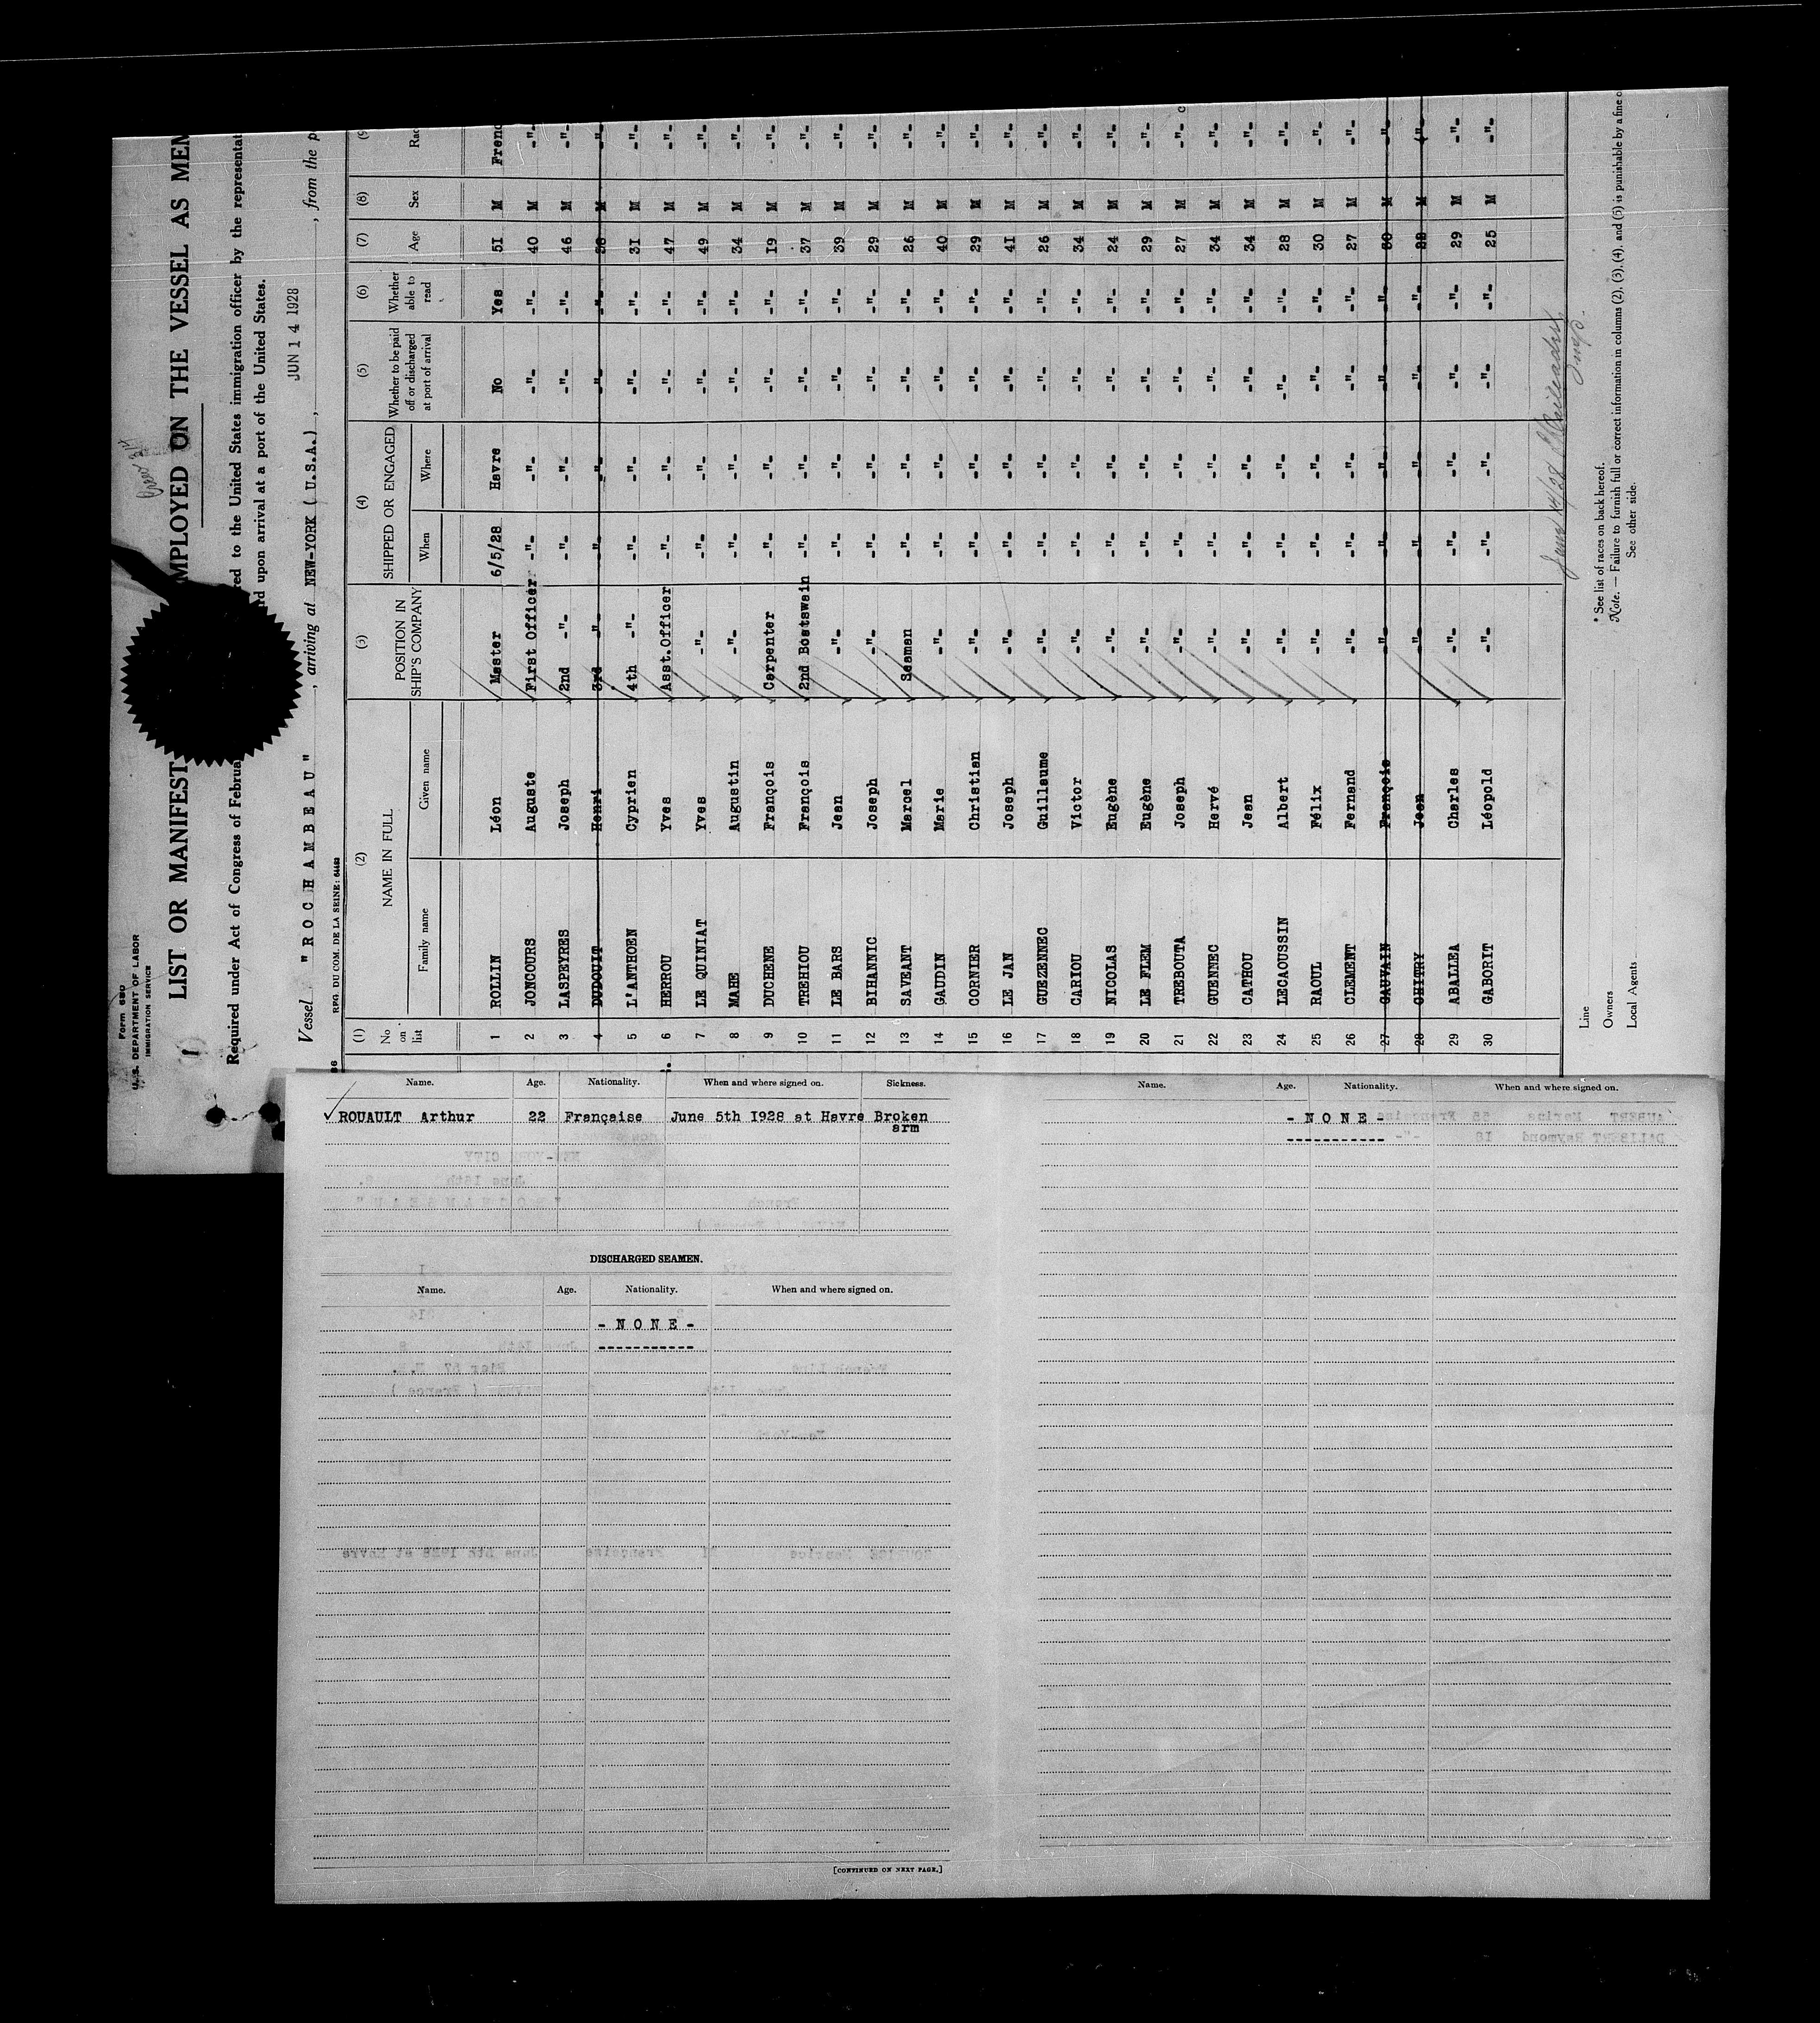 Form 680
U.S. DEPARTMENT OF LABOR
IMMIGRATION SERVICE
1
LIST OR MANIFEST MPLOYED ON THE VESSEL AS MEM
Required under Act of Congress of Februa red to the United States immigration officer by the representat
d upon arrival at a port of the United States.
JUN 14 1928
Vessel "ROCHAMBEAU", arriving at NEW-YORK (U.S.A.), , from the p
RPG. DU COM. DE LA SEINE: 64483
(1) (2) (3) (4) (5) (6) (7) (8) (9
No on list NAME IN FULL POSITION IN SHIP'S COMPANY SHIPPED OR ENGAGED Whether to be paid off or discharged at port of arrival Whether able to read Age Sex Rac
Family name Given name When Where
1 ROLLIN Léon Master 6/5/28 Havre No Yes 51 M Frenc
2 JONCOURS Auguste First Officer -"- -"- -"- -"- 40 M -"-
3 LASPEYRES Joseph 2nd -"- -"- -"- -"- -"- 46 M -"-
4 DUDOUIT Henri 3rd -"- -"- -"- -"- -"- 38 M -"-
5 L'ANTHOEN Cyprien 4th -"- -"- -"- -"- -"- 31 M -"-
6 HERROU Yves Asst.Officer -"- -"- -"- -"- 47 M -"-
7 LE QUINIAT Yves -"- -"- -"- -"- -"- 49 M -"-
8 MAHE Augustin -"- -"- -"- -"- -"- 34 M -"-
9 DUCHENE François Carpenter -"- -"- -"- -"- 19 M -"-
10 TREHIOU François 2nd Boetswain -"- -"- -"- -"- 37 M -"-
11 LE BARS Jean -"- -"- -"- -"- -"- 39 M -"-
12 BIHANNIC Joseph -"- -"- -"- -"- -"- 29 M -"-
13 SAVEANT Marcel Seaman -"- -"- -"- -"- 26 M -"-
14 GAUDIN Marie -"- -"- -"- -"- -"- 40 M -"-
15 CORNIER Christian -"- -"- -"- -"- -"- 29 M -"-
16 LE JAN Joseph -"- -"- -"- -"- -"- 41 M -"-
17 GUEZENNEC Guillaume -"- -"- -"- -"- -"- 26 M -"-
18 CARIOU Victor -"- -"- -"- -"- -"- 34 M -"-
19 NICOLAS Eugène -"- -"- -"- -"- -"- 24 M -"-
20 LE FLEM Eugène -"- -"- -"- -"- -"- 29 M -"-
21 TREBOUTA Joseph -"- -"- -"- -"- -"- 27 M -"- c
22 GUENNEC Hervé -"- -"- -"- -"- -"- 34 M -"-
23 CATHOU Jean -"- -"- -"- -"- -"- 34 M -"-
24 LECAOUSSIN Albert -"- -"- -"- -"- -"- 28 M -"-
25 RAOUL Félix -"- -"- -"- -"- -"- 30 M -"-
26 CLEMENT Fernand -"- -"- -"- -"- -"- 27 M -"-
27 GAUVAIN François -"- -"- -"- -"- -"- 30 M -"-
28 CHITRY Jean -"- -"- -"- -"- -"- 28 M -"-
29 ABALLEA Charles -"- -"- -"- -"- -"- 29 M -"-
30 GABORIT Léopold -"- -"- -"- -"- -"- 25 M -"-
June 14/28
Insp.
Line
Owners
Local Agents
* See list of races on back hereof.
Note. — Failure to furnish full or correct information in columns (2), (3), (4), and (5) is punishable by a fine o
See other side.
Name. Age. Nationality. When and where signed on. Sickness.
ROUAULT Arthur 22 Française June 5th 1928 at Havre Broken
arm
DISCHARGED SEAMEN.
Name. Age. Nationality. When and where signed on.
- N O N E -
[CONTINUED ON NEXT PAGE.]
Name. Age. Nationality. When and where signed on.
- N O N E -